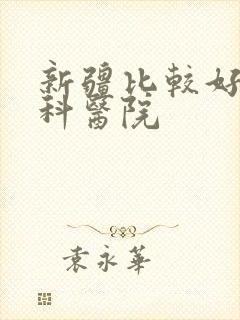 新疆比較好
科醫院
袁永華